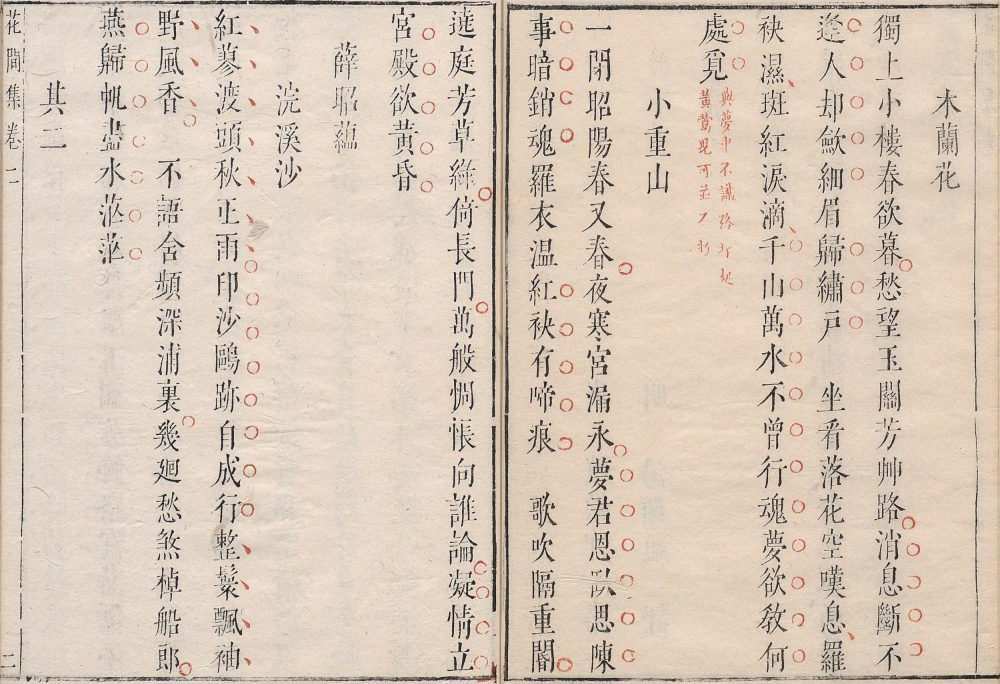 木蘭花
獨上小樓春欲暮愁望玉關芳艸路消息斷不
逢人却斂細眉歸繡戶　坐看落花空嘆息羅
袂濕斑紅淚滴千山萬水不曾行魂夢欲敎何
處覓
與夢中不識路打起
黃鶯兒可並
小重山
一閉昭陽春又春夜寒宮漏永夢君恩臥思陳
事暗銷魂羅衣温紅袂有啼痕　歌吹隔重閽
遶庭芳草綠倚長門萬般惆悵向誰論凝情立
宮殿欲黃昏
薛昭蘊
浣溪沙
紅蓼渡頭秋正雨印沙鷗跡自成行整鬟飄袖
野風香　不語含嚬深浦裏幾廻愁煞棹船郎
燕歸帆盡水茫茫
其二
花間集卷二　二